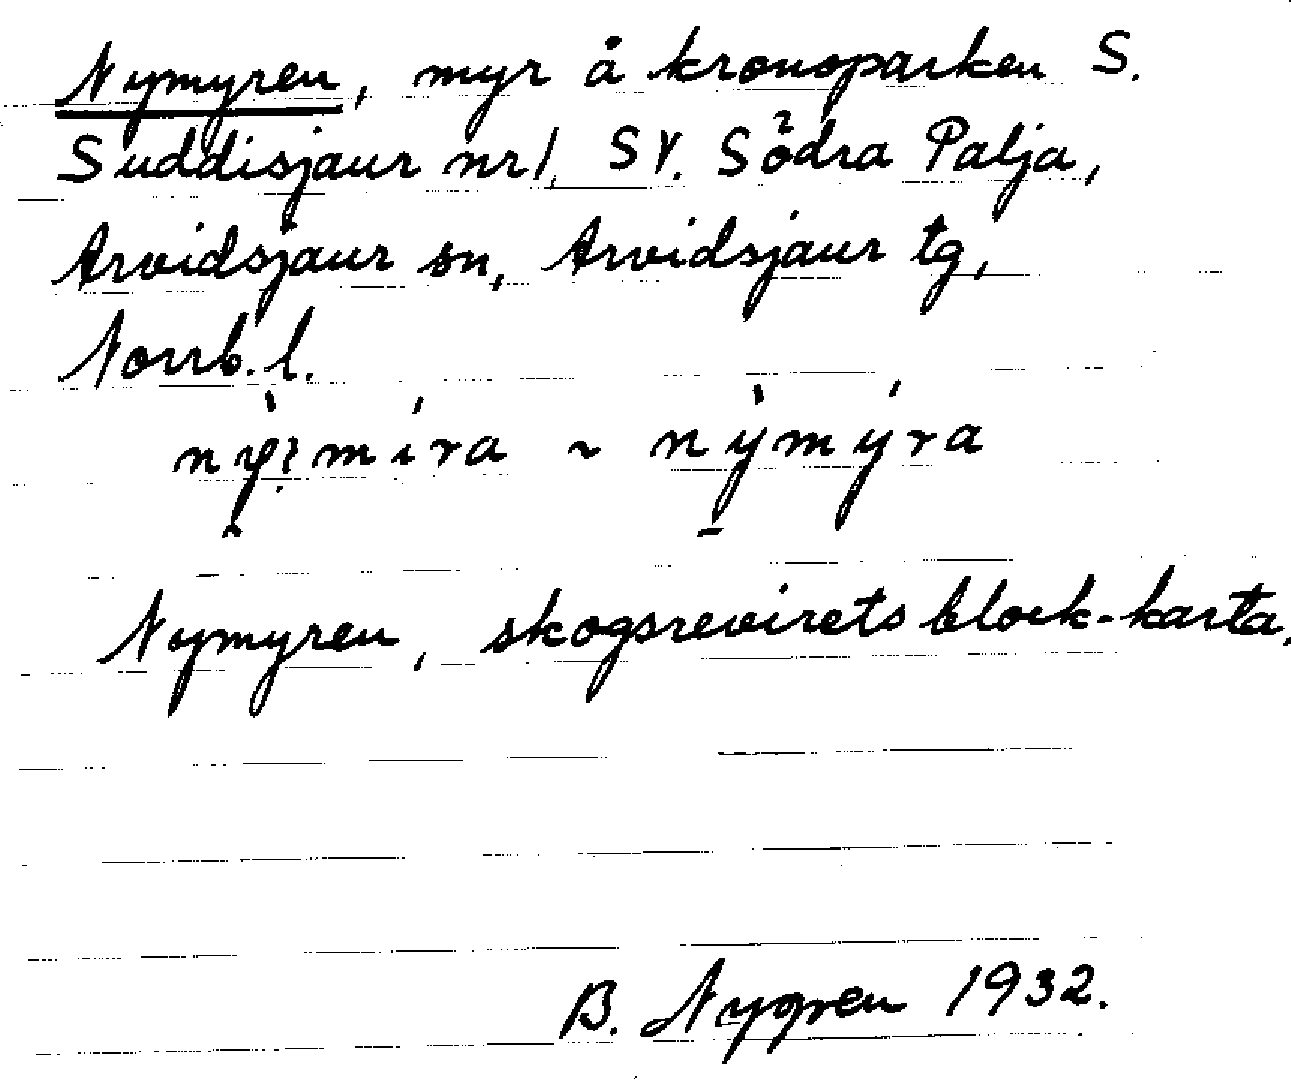 Nymyren, myr å kronoparken S.
Suddisjaur nr 1, SV. Södra Palja,
Arvidsjaur sn, Arvidsjaur tg,
Norrb. l.
~ nỳmýra
Nymyren, skogsrevirets block-karta.
B. Nygren 1932.